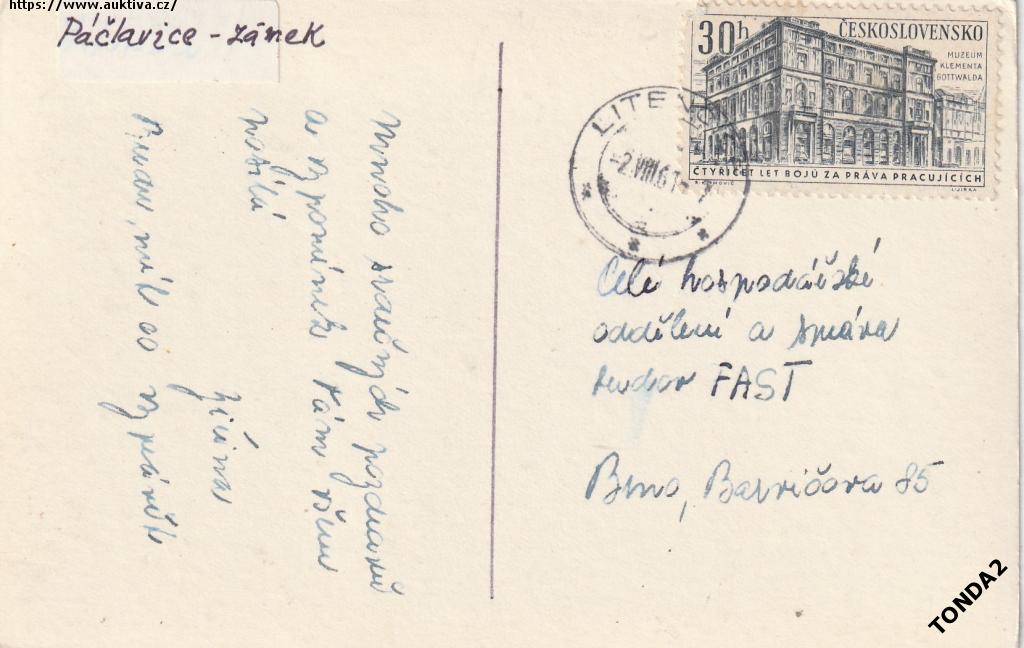 https://www.auktiva.cz/
Páčlavice - zámek
30h ČESKOSLOVENSKO
MUZEUM
KLEMENTA
GOTTWALDA
ČTYŘICET LET BOJŮ ZA PRÁVA PRACUJÍCÍCH
LITEV
-2.VIII.61
Mnoho srdečných pozdravů
a vzpomínek Vám všem
posílá
Jiřina
Budu mít co vyprávět
Celé hospodářské
oddělení a správa
budov FAST
Brno, Barvičova 85
TONDA2